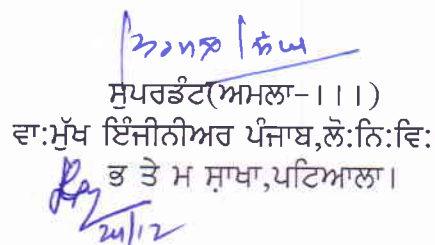 ਸੁਪਰਡੰਟ(ਅਮਲਾ-।।।)
ਵਾ:ਮੁੱਖ ਇੰਜੀਨੀਅਰ ਪੰਜਾਬ,ਲੋ:ਨਿ:ਵਿ:
ਭ ਤੇ ਮ ਸ਼ਾਖਾ,ਪਟਿਆਲਾ।
24/12